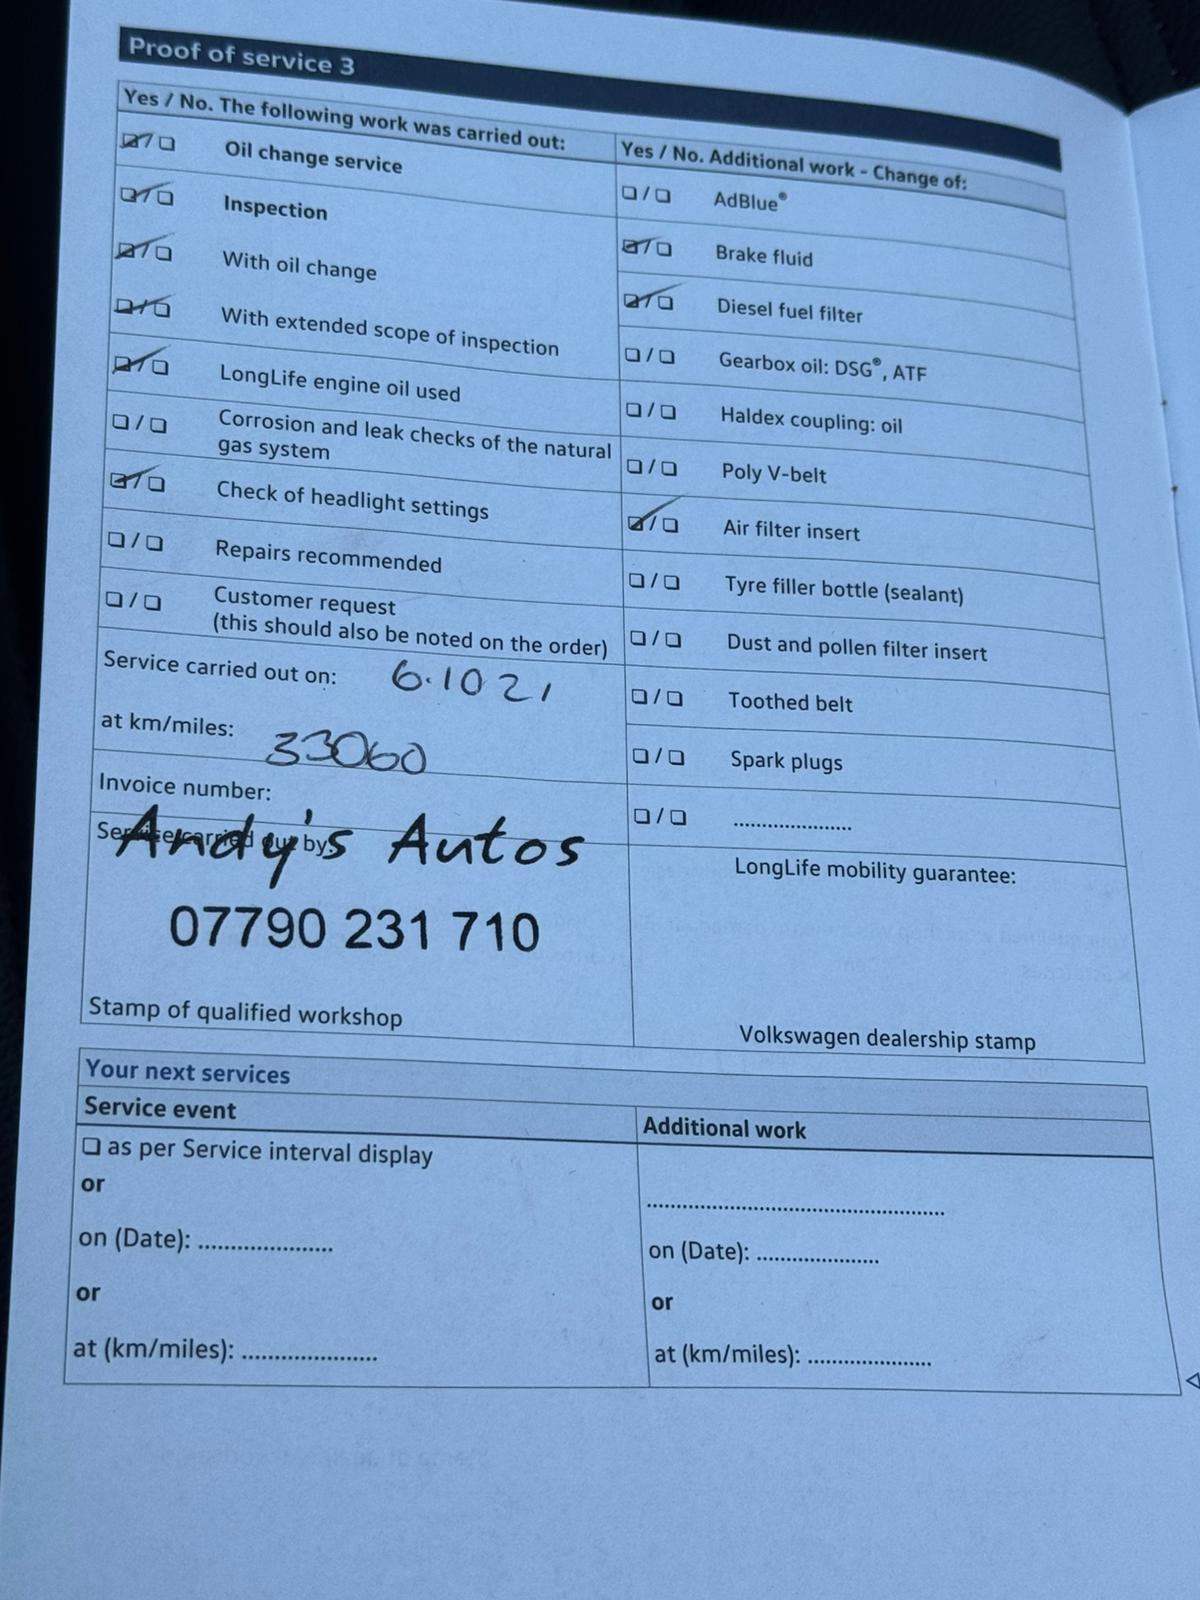 Proof of service 3
Yes / No. The following work was carried out:
Oil change service
Inspection
With oil change
With extended scope of inspection
LongLife engine oil used
Corrosion and leak checks of the natural
gas system
Check of headlight settings
Repairs recommended
Customer request
(this should also be noted on the order)
Service carried out on: 6.10 21
at km/miles: 33060
Invoice number:
Service carried out by:
Andy's Autos
07790 231 710
Stamp of qualified workshop
Yes / No. Additional work - Change of:
AdBlue®
Brake fluid
Diesel fuel filter
Gearbox oil: DSG®, ATF
Haldex coupling: oil
Poly V-belt
Air filter insert
Tyre filler bottle (sealant)
Dust and pollen filter insert
Toothed belt
Spark plugs
.....................
LongLife mobility guarantee:
Volkswagen dealership stamp
Your next services
Service event
as per Service interval display
or
on (Date): .....................
or
at (km/miles): .....................
Additional work
..............................................
on (Date): .....................
or
at (km/miles): .....................